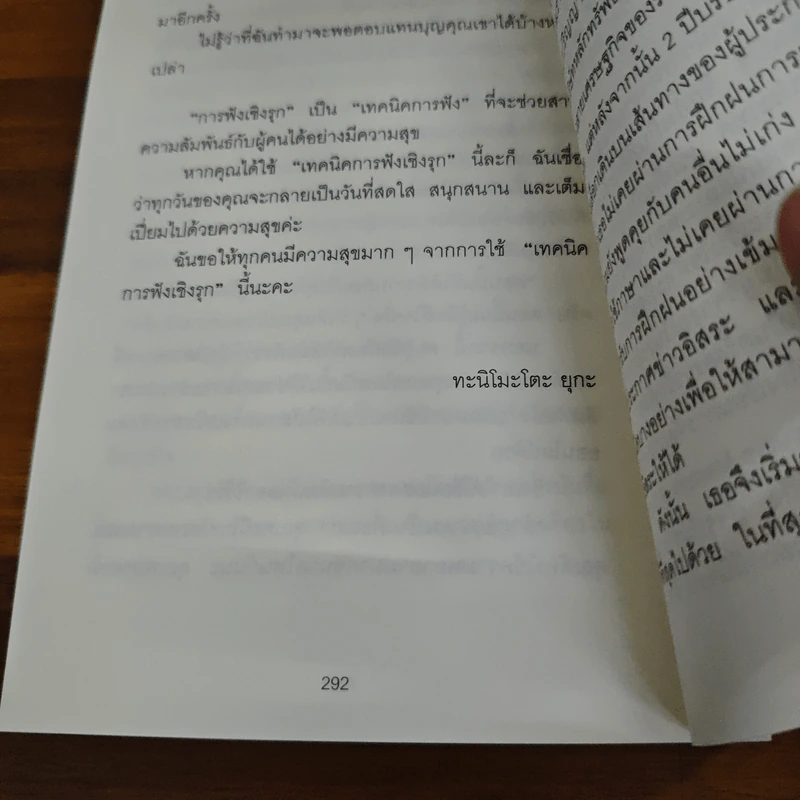 มาอีกครั้ง
ไม่รู้ว่าที่ฉันทำมาจะพอตอบแทนบุญคุณเขาได้บ้าง
เปล่า
“การฟังเชิงรุก” เป็น “เทคนิคการฟัง” ที่จะช่วย
ความสัมพันธ์กับผู้คนได้อย่างมีความสุข
หากคุณได้ใช้ “เทคนิคการฟังเชิงรุก” นี้ละก็ ฉันเชื่อ
ว่าทุกวันของคุณจะกลายเป็นวันที่สดใส สนุกสนาน และเต็ม
เปี่ยมไปด้วยความสุขค่ะ
ฉันขอให้ทุกคนมีความสุขมาก ๆ จากการใช้ “เทคนิค
การฟังเชิงรุก” นี้นะคะ
ทะนิโมะโตะ ยุกะ
292
หลังจากนั้น 2 ปี
เดินบนเส้นทางของผู้
ไม่เคยผ่านการฝึกฝนการ
พูดคุยกับคนอื่นไม่เก่ง
ภาษาและไม่เคยผ่าน
การฝึกฝนอย่างเข้ม
ประกาศข่าวอิสระ และ
อย่างเพื่อให้
ให้ได้
ดังนั้น เธอจึงเริ่ม
ไปด้วย ในที่สุ